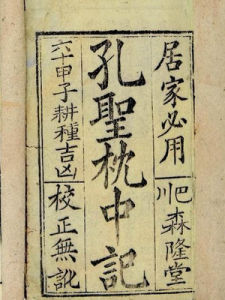 居家必用
巴川森隆堂
孔聖枕中記
六十甲子耕種吉凶
校正無訛